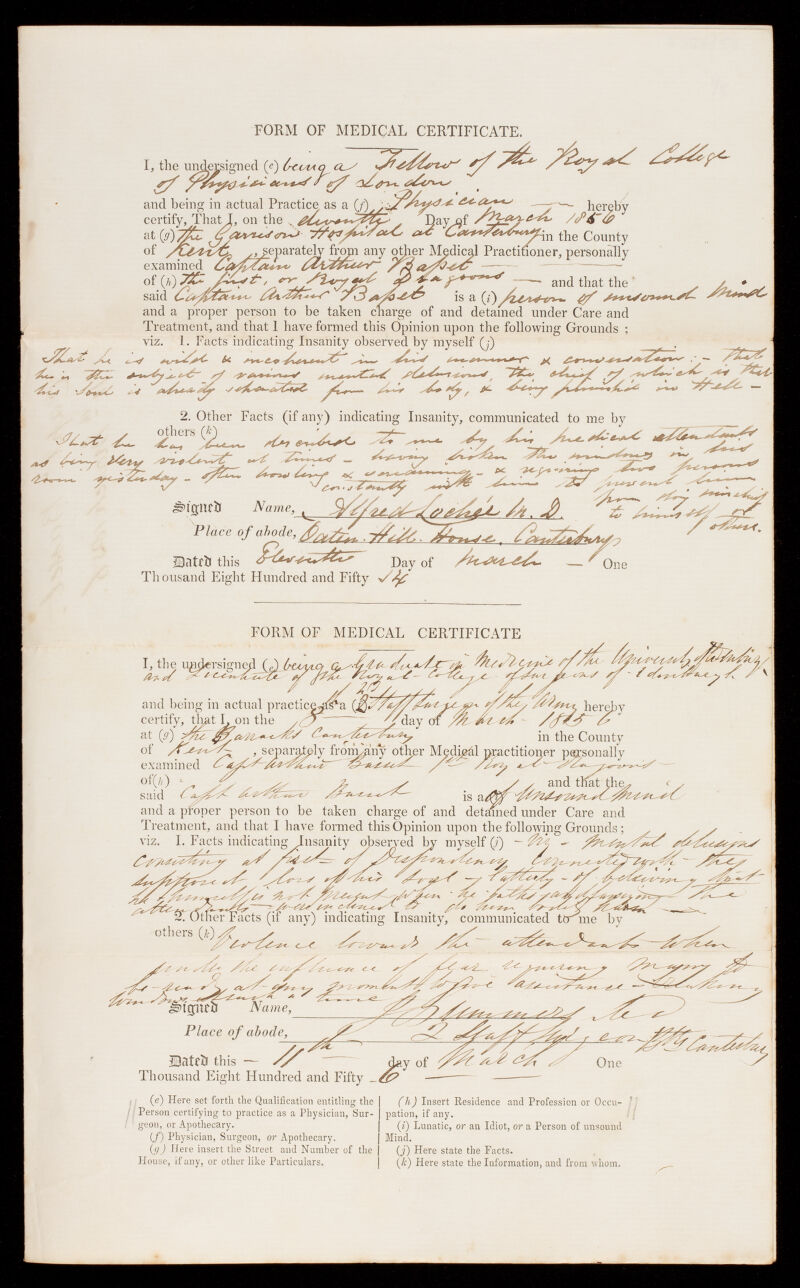 FORM OF MEDICAL CERTIFICATE.
I, the undersigned (e) being a Fellow of the Royal College
of Physicians of London
and being in actual Practice as a (f) Physician — hereby
certify, That I, on the eleventh Day of March 1856
at (g) the Garrison Hospital at Canterbury in the County
of Kent, separately from any other Medical Practitioner, personally
examined Captain Arthur Basset
of (h) the first, or Royal Dragoons — and that the
said Captain Arthur Basset is a (i) person of unsound mind
and a proper person to be taken charge of and detained under Care and
Treatment, and that I have formed this Opinion upon the following Grounds ;
viz. 1. Facts indicating Insanity observed by myself (j)
That he is wild & incoherent in his manner & conversation :– that
he is the subject of various mental delusions, the chief of which is that
his Soul is already separated from his body, & being punished in Hell –
2. Other Facts (if any) indicating Insanity, communicated to me by
others (k)
That he has been described to me by his medical attendants
as being very violent at times – having broken the windows in his
room yesterday – often howling & screaming – & requiring two persons
constantly with him to prevent him
from doing mischief
to himself or
others.
Signed Name, Alfred Lochée M.D.
Place of abode, Oaten Hill House, Canterbury
Dated this Eleventh Day of March — One
Thousand Eight Hundred and Fifty
FORM OF MEDICAL CERTIFICATE
I, the undersigned (e) being a Graduate in Medicine of the University of Edinburgh
and Licentiate of the Royal College of Surgeons of Edinburgh
and being in actual practice as a (f) 2d Staff Surgeon of the Army hereby
certify, that I, on the day of March 1856
at (g) the Barracks Canterbury in the County
of Kent, separately from any other Medical practitioner personally
examined Capt Arthur 1st Royal Dragoons
of (h) and that the
said Capt Arthur is a of Unsound Mind
and a proper person to be taken charge of and detained under Care and
Treatment, and that I have formed this Opinion upon the following Grounds ;
viz. 1. Facts indicating Insanity observed by myself (j) – viz – mental delusions
consisting at first of Despondency connected with the
supposed loss of his Soul – latterly of believing that
he himself is not present when he talks and supposing the
were inclined to do him harm —
2. Other Facts (if any) indicating Insanity, communicated to me by
others (k) Violence towards the attendants when
under the influence of fear requiring many to
be ready at any moment to give assistance – Breaking
windows at a time
Signed Name, J Summers MD
Place of abode, 2 Staff Surgeon Bks Canterbury
Dated this — 11th day of March One
Thousand Eight Hundred and Fifty – 6
(e) Here set forth the Qualification entitling the
Person certifying to practice as a Physician, Sur-
geon, or Apothecary.
(f) Physician, Surgeon, or Apothecary.
(g) Here insert the Street and Number of the
House, if any, or other like Particulars.
(h) Insert Residence and Profession or Occu-
pation, if any.
(i) Lunatic, or an Idiot, or a Person of unsound
Mind.
(j) Here state the Facts.
(k) Here state the Information, and from whom.